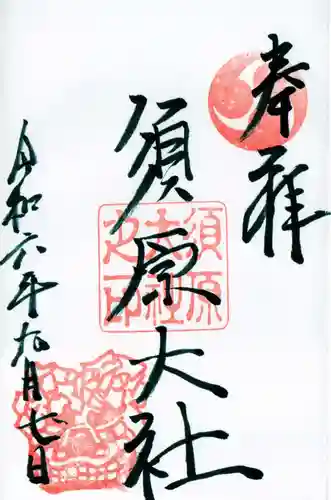 奉拝
須原大社
須原大社之印
令和六年九月七日